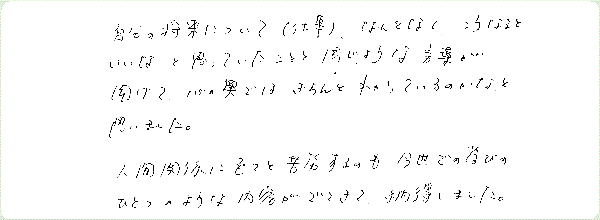 自分の将来について(仕事)、なんとなく、こうなると
いいな と思っていたことと 同じような 言葉が
聞けて、心の奥では ちゃんと わかっているのかなと
思いました。
人間関係に ずっと 苦労するのも 今世での学びの
ひとつ のような 内容がでてきて、納得しました。